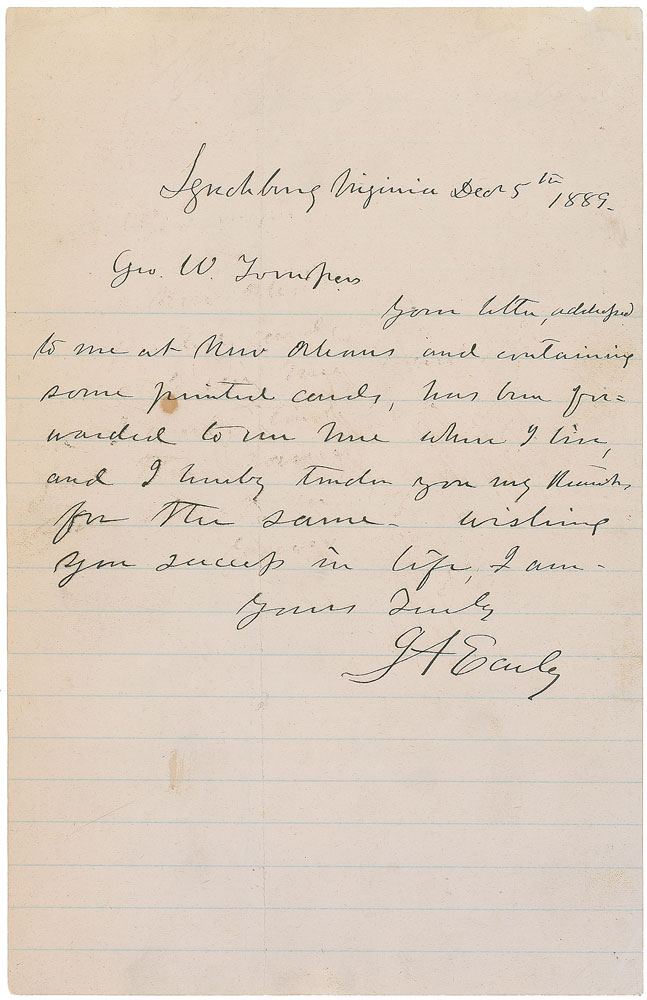 Lynchburg Virginia Decr 5th 1889.
Geo. W.
Your letter, addressed
to me at New Orleans and containing
some printed cards, has been for=
warded to me here where I live,
and I hereby tender you my thanks,
for the same - wishing
you success in life, I am -
Yours Truly
J A Early